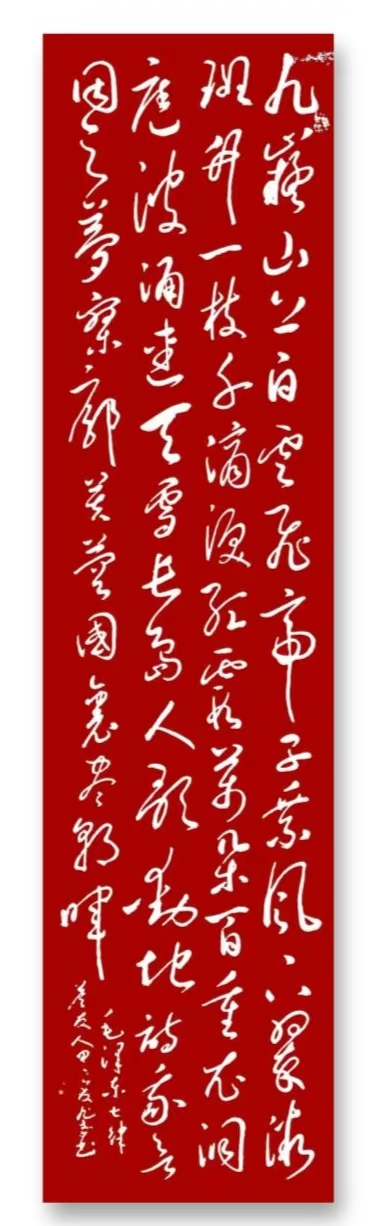 九嶷山上白雲飛帝子乘風下翠微
斑竹一枝千滴淚紅霞萬朵百重衣洞
庭波涌連天雪長島人歌動地詩我欲
因之夢寥廓芙蓉國裏盡朝暉
毛澤東七律
答友人